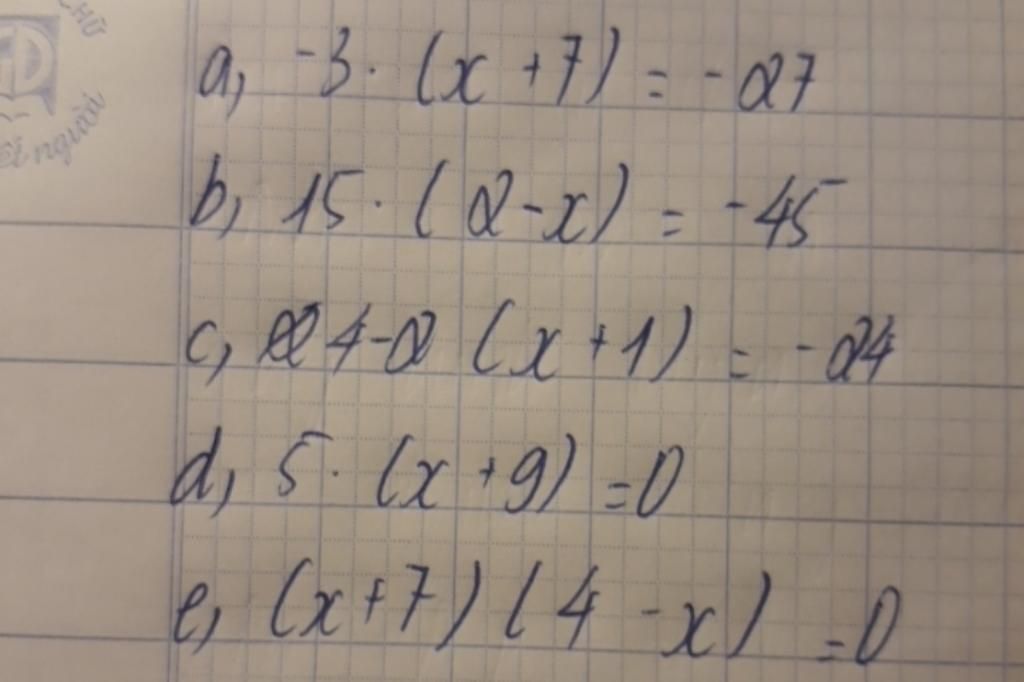 CHỮ
GD
người
a, -3. (x + 7) = -27
b, 15. (2 - x) = -45
c, 24 - 2 (x + 1) = -24
d, 5. (x + 9) = 0
e, (x + 7) (4 - x) = 0